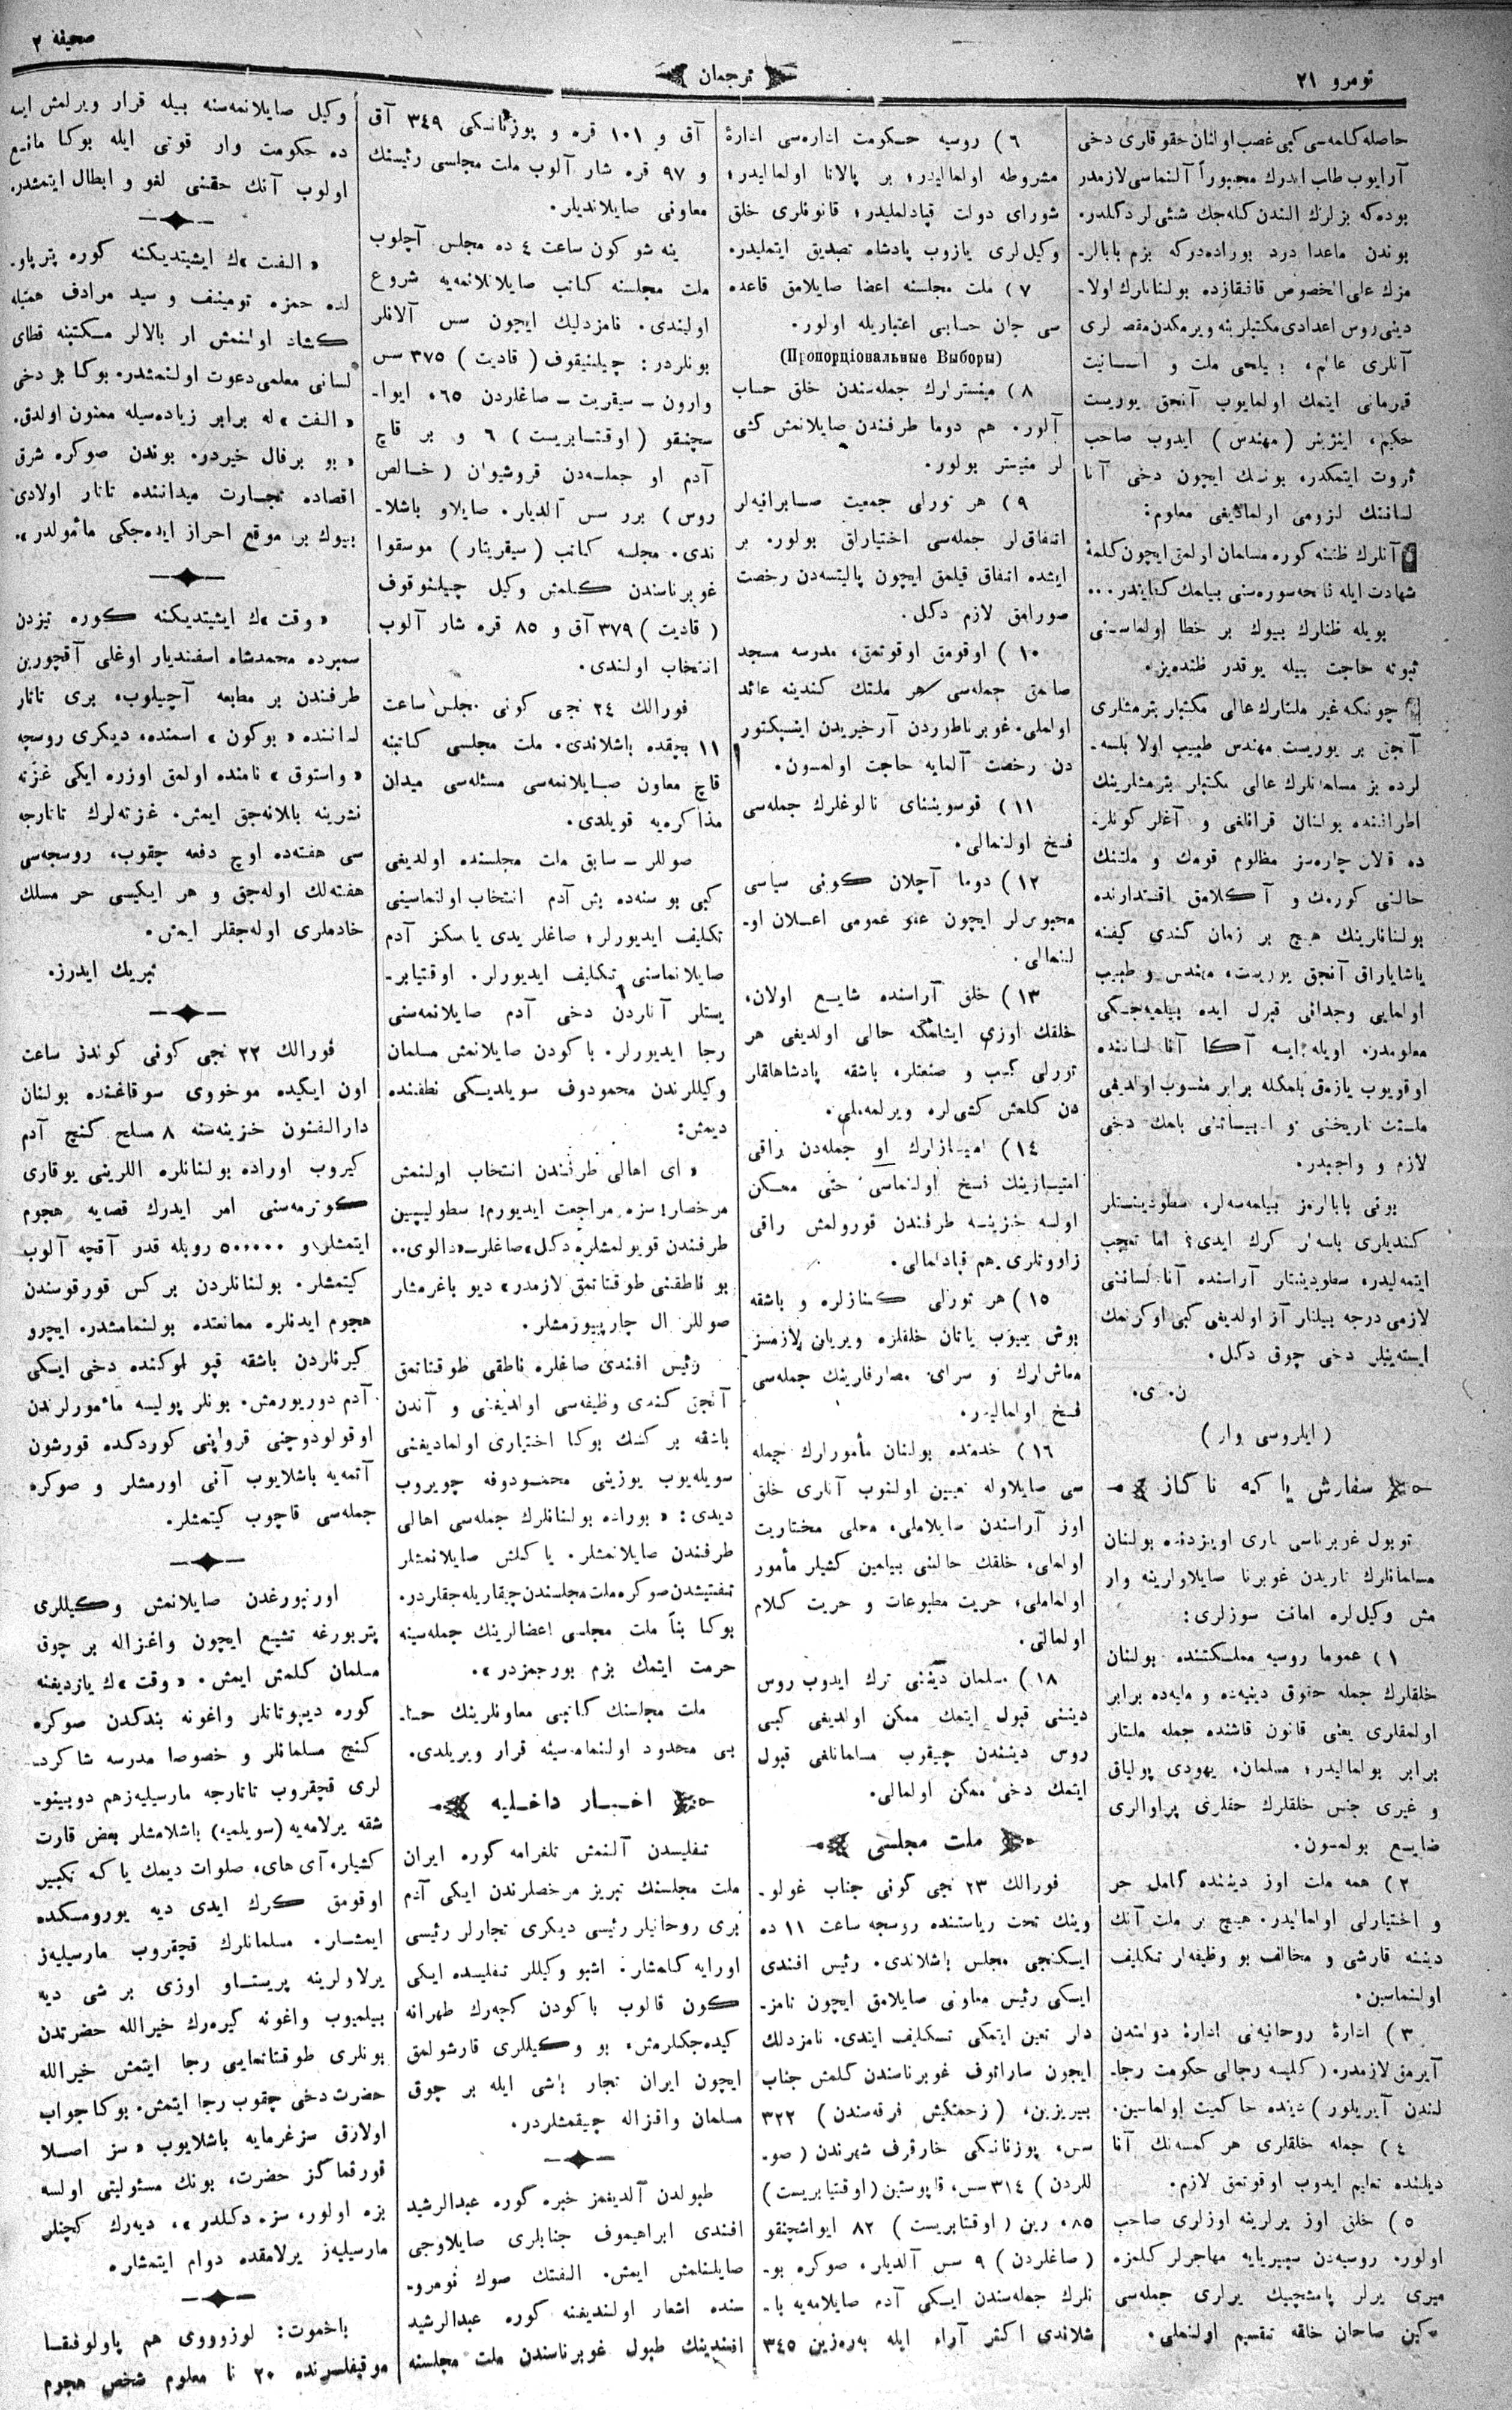 نومرو ٢١
ترجمان
صحیفه ٢
حاصله کلمه‌سی کبی غصب اولنان حقوقاری دخی
آرایوب طلب ایدرك مجبوراً آلنماسی لازمدر
بوده‌که بزلرك الندن کله‌جك شئی لر دکلدر.
بوندن ماعدا درد بوراده‌درکه بزم بابالر-
مزك علی الخصوص قافقازده بولنانلرك اولا-
دینی روس اعدادی مکتبلرینه ویرمکدن مقصدلری
آنلری عالم، ملت و انسانیت
قهرمانی ایتمك اولمایوب آنجق یوریست
حکیم، اینژینر (مهندس) ایدوب صاحب
ثروت ایتمکدر. بونك ایچون دخی آنا
لسانك لزومی اولمادیغی معلوم:
آنلرك ظننه کوره مسلمان اولمق ایچون کلمهٔ
شهادت ایله فاتحه سوره‌سنی بیلمك کفایدر...
بویله ظنلرك بیوك بر خطا اولماسنی
ثبوته حاجت بیله یوقدر ظنده‌یز.
چونکه غیر ملتلرك عالی مکتبلر بترمشلری
آنجق بر یوریست مهندس طبیب اولا بلسه-
لرده بز مسلمانلرك عالی مکتبلر بترمشلرینك
اطرافنده بولنان قراکلغی و آغلر کونلر-
ده قلان چاره‌سز مظلوم قومك و ملتنك
حالنی کورمك و آکلامق اقتدارنده
بولنانلرینك هیچ بر زمان کندی کیفنه
یاشایاراق آنجق یوریست، مهندس و طبیب
اولمایی وجدانی قبول ایده بیلمیه‌جکی
معلومدر. اویله ایسه آکا آنا لساننده
اوقویوب یازمق بلمکله برابر منسوب اولدیغی
ملتنك تاریخنی و ادبیاتنی بلمك دخی
لازم و واجبدر.
بونی بابالرمز بیلمه‌سه‌لر، سطودینتلر
کندیلری بلسه‌لر کرك ایدی؟ اما تعجب
ایتمه‌لیدر. سطودینتلر آراسنده آنا لساننی
لازمی درجه بیلنلر آز اولدیغی کبی اوکرنمك
ایسته‌ینلر دخی چوق دکل.
ن. ی.
(ایلروسی وار)
سفارش یا که ناکاز
توبول غوبرناسی تاری اویزدنده بولنان
مسلمانلرك تاریدن غوبرنا صایلاولرینه وار
مش وکیل لره امانت سوزلری:
١) عموما روسیه مملکتنده بولنان
خلقلرك جمله حقوق دینیه‌ده و مایه‌ده برابر
اولمقلری یعنی قانون قاشنده جمله ملتلر
برابر بولمالیدر؛ مسلمان، یهودی پولیاق
و غیری جنس خلقلرك حقلری پراوالری
ضایع بولمسون.
٢) همه ملت اوز دیننده کامل حر
و اختیارلی اولمالیدر. هیچ بر ملت آنك
دیننه قارشی و مخالف بو وظیفه‌لر تکلیف
اولنماسین.
٣) ادارهٔ روحانیه‌نی ادارهٔ دولتدن
آیرمق لازمدر. (کلیسه رجالی حکومت رجا-
لندن آیریلور) دینده حاکمیت اولماسین.
٤) جمله خلقلری هر کمسه‌نك آنا
دیلنده تعلیم ایدوب اوقوتمق لازم.
٥) خلق اوز یرلرینه اوزلری صاحب
اولور. روسیه‌دن سیبریایه مهاجرلر کلمزه
میری یرلر پامشچیك یرلری جمله‌سی
اکین صاجان خلقه تقسیم اولنملی.
٦) روسیه حکومت اداره‌سی ادارهٔ
مشروطه اولمالیدر؛ بر پالاتا اولمالیدر؛
شورای دولت قپادلملیدر؛ قانونلری خلق
وکیل لری یازوب پادشاه تصدیق ایتملیدر.
٧) ملت مجلسنه اعضا صایلامق قاعده
سی جان حسابی اعتباریله اولور.
(Пропорціональные Выборы)
٨) مینسترلرك جمله‌سندن خلق حساب
آلور. هم دوما طرفندن صایلانمش کشی
لر منیستر بولور.
٩) هر تورلی جمعیت صابرانیه‌لر
اتفاق‌لر جمله‌سی اختیارلق بولور. بر
ایشده اتفاق قیلمق ایچون پالیتسه‌دن رخصت
صورامق لازم دکل.
١٠) اوقومق اوقوتمق، مدرسه مسجد
صالمق جمله‌سی هر ملتك کندینه عائد
اولملی. غوبرناطوردن آرخیریدن اینسپکتور
دن رخصت آلمایه حاجت اولمسون.
١١) قوسوینای نالوغلرك جمله‌سی
فسخ اولنمالی.
١٢) دوما آچلان کونی سیاسی
محبوسلر ایچون عفو عمومی اعلان او-
لنمالی.
١٣) خلق آراسنده شایع اولان،
خلقك اوزی ایشلمکه حالی اولدیغی هر
تورلی کسب و صنعتلر، باشقه پادشاهلقلر
دن کلمش کشی‌لره ویرلمه‌ملی.
١٤) امتیازلرك او جمله‌دن راقی
امتیازینك فسخ اولنماسی حتی ممکن
اولسه خزینه طرفندن قورولمش راقی
زاوودلری هم قپادلمالی.
١٥) هر تورلی کنازلره و باشقه
بوش ییوب یاتان خلقلره ویریلن لازمسز
معاش‌لرك و سرای مصارفلرینك جمله‌سی
فسخ اولمالیدر.
١٦) خدمتده بولنان مأمورلرك جمله
سی صایلاوله تعیین اولنوب آنلری خلق
اوز آراسندن صایلاملی، محلی مختاریت
اولملی، خلقك حالنی بیلمین کشیلر مأمور
اولماملی؛ حریت مطبوعات و حریت کلام
اولمالی.
١٨) مسلمان دیننی ترك ایدوب روس
دیننی قبول ایتمك ممکن اولدیغی کبی
روس دیندن چیقوب مسلمانلغی قبول
ایتمك دخی ممکن اولمالی.
ملت مجلسی
فورالك ٢٣ نجی کونی جناب غولو-
وینك تحت ریاستنده روسجه ساعت ١١ ده
ایکنجی مجلس باشلاندی. رئیس افندی
ایکی رئیس معاونی صایلامق ایچون نامز-
دلر تعین ایتمکی تکلیف ایتدی. نامزدلك
ایچون ساراتوف غوبرناسندن کلمش جناب
بیریزین، (زحمتکش فرقه‌سندن) ٣٢٢
سس، پوزنانسکی خارقوف شهرندن (صو-
للردن) ٣١٤ سس، قاپوستین (اوقتیابریست)
٨٥، رین (اوقتابریست) ٨٢ ایواشچنقو
(صاغلردن) ٩ سس آلدیلر. صوکره بو-
نلرك جمله‌سندن ایکی آدم صایلامه‌یه با-
شلاندی اکثر آراء ایله بەرەزین ٣٤٥
آق و ١٠١ قره و پوزنانسکی ٣٤٩ آق
و ٩٧ قره شار آلوب ملت مجلسی رئیسنك
معاونی صایلاندیلر.
ینه شو کون ساعت ٤ ده مجلس آچلوب
ملت مجلسنه کاتب صایلانلانمه‌یه شروع
اولندی. نامزدلیك ایچون سس آلانلر
بونلردر: چیلنیقوف (قادیت) ٣٧٥ سس
وارون-سیقریت-صاغلردن ٦٥، ایوا-
سچنقو (اوقتابریست) ٦ و بر قاچ
آدم او جمله‌دن قروشیوان (خالص
روس) برر سس آلدیلر. صایلاو باشلا-
ندی. مجلسه کاتب (سیقریتار) موسقوا
غوبرناسندن کلمش وکیل چیلنوقوف
(قادیت) ٣٧٩ آق و ٨٥ قره شار آلوب
انتخاب اولندی.
فورالك ٢٤ نجی کونی مجلس ساعت
١١ بچقده باشلاندی. ملت مجلسی کاتبنه
قاچ معاون صایلانمه‌سی مسئله‌سی میدان
مذاکره‌یه قویلدی.
صوللر-سابق ملت مجلسنده اولدیغی
کبی بو سنه‌ده بش آدم انتخاب اولنماسینی
تکلیف ایدیورلر؛ صاغلر یدی یا سکز آدم
صایلانماسنی تکلیف ایدیورلر. اوقتیابر-
یستلر آنلردن دخی آدم صایلانمه‌سنی
رجا ایدیورلر. باکودن صایلانمش مسلمان
وکیللرندن محمودوف سویلدیکی نطقنده
دیمش:
«ای اهالی طرفندن انتخاب اولنمش
مرخصلر! سزه مراجعت ایدیورم! سطولیپین
طرفندن قویولمشلره دکل» صاغلر-«دالوی..
بو ناطقنی طوقتاتمق لازمدر» دیو باغرمشلر
صوللر ال چارپیورمشلر.
رئیس افندی صاغلره ناطقی طوقتاتمق
آنجق کندی وظیفه‌سی اولدیغنی و آندن
باشقه بر کسك بوکا اختیاری اولمادیغنی
سویله‌یوب یوزینی محمودوفه چویروب
دیدی: «بوراده بولنانلرك جمله‌سی اهالی
طرفندن صایلانمشلر. یاکلش صایلانمشلر
تفتیشدن صوکره ملت مجلسندن چقاریله‌جقلردر.
بوکا بناً ملت مجلسی اعضالرینك جمله‌سینه
حرمت ایتمك بزم بورجمزدر».
ملت مجلسنك کاتبی معاونلرینك حسا-
بی محدود اولنمامه‌سینه قرار ویریلدی.
اخبار داخلیه
تفلیسدن آلنمش تلغرامه کوره ایران
ملت مجلسنك تبریز مرخصلرندن ایکی آدم
بری روحانیلر رئیسی دیکری تجارلر رئیسی
اورایه کلمشلر. اشبو وکیللر تفلیسده ایکی
کون قالوب باکودن کچه‌رك طهرانه
کیده‌جکلرمش. بو وکیللری قارشولمق
ایچون ایران تجار باشی ایله بر چوق
مسلمان واقزاله چیقمشلردر.
طبولدن آلدیغمز خبره کوره عبدالرشید
افندی ابراهیموف جنابلری صایلاوجی
صایلنلمش ایمش. الفتك صوك نومرو-
سنده اشعار اولندیغنه کوره عبدالرشید
افندینك طبول غوبرناسندن ملت مجلسنه
وکیل صایلانمه‌سنه بیله قرار ویرلمش ایسه
ده حکومت وار قوتی ایله بوکا مانع
اولوب آنك حقنی لغو و ابطال ایتمشدر.
«الفت»ك ایشیتدیکنه کوره پترپاو-
لده حمزه تومینف و سید مرادف همتیله
کشاد اولنمش ار بالالر مکتبنه قطای
لسانی معلمی دعوت اولنمشدر. بوکا بز دخی
«الفت»له برابر زیاده‌سیله ممنون اولدق.
«بو برفال خیردر. بوندن صوکره شرق
اقصاده تجارت میداننده تاتار اولادی
بیوك بر موقع احراز ایده‌جکی مأمولدر».
«وقت»ك ایشیتدیکنه کوره تیزدن
سمبرده محمدشاه اسفندیار اوغلی آقچورین
طرفندن بر مطبعه آچیلوب، بری تاتار
لساننده «بوکون» اسمنده، دیکری روسچه
«واستوق» نامنده اولمق اوزره ایکی غزته
نشرینه باشلانه‌جق ایمش. غزته‌لرك تاتارجه
سی هفته‌ده اوچ دفعه چقوب، روسجه‌سی
هفته‌لك اوله‌جق و هر ایکیسی حر مسلك
خادملری اوله‌جقلر ایمش.
تبریك ایدرز.
فورالك ٢٢ نجی کونی کوندز ساعت
اون ایکیده موخووی سوقاغنده بولنان
دارالفنون خزینه‌سنه ٨ مسلح کنج آدم
کیروب اوراده بولنانلره اللرینی یوقاری
کوترمه‌سنی امر ایدرك قصایه هجوم
ایتمشلر و ٥٠،٠٠٠ روبله قدر آقچه آلوب
کیتمشلر. بولنانلردن برکس قورقوسندن
هجوم ایدنلره ممانعتده بولنمامشدر. ایچرو
کیرنلردن باشقه قپو توکنده دخی ایکی
آدم دوریورمش. بونلر پولیسه مأمورلرندن
اوقولودوچنی قروپنی کوردکده قورشون
آتمه‌یه باشلایوب آنی اورمشلر و صوکره
جمله‌سی قاچوب کیتمشلر.
اورنبورغدن صایلانمش وکیللری
پتربورغه تشییع ایچون واغزاله بر چوق
مسلمان کلمش ایمش. «وقت»ك یازدیغنه
کوره دیپوتاتلر واغونه بندکدن صوکره
کنج مسلمانلر و خصوصا مدرسه شاکرد-
لری قچقروب تاتارجه مارسیلیه‌زهم دوبینو-
شقه یرلامه‌یه (سویلمیه) باشلامشلر بعض قارت
کشیلر، آی های، صلوات دیمك یا که تکبیر
اوقومق کرك ایدی دیه یورومسکده
ایمشلر. مسلمانلرك قچقروب مارسیلیه‌ز
یرلاولرینه پریستاو اوزی بر شی دیه
بیلمیوب واغونه کیره‌رك خیرالله حضرتدن
بونلری طوقتاتمایی رجا ایتمش خیرالله
حضرت دخی چقوب رجا ایتمش. بوکا جواب
اولارق سزغرمایه باشلایوب «سز اصلا
قورقماکز حضرت، بونك مسئولیتی اولسه
بزه اولور، سزه دکلدر»، دیه‌رك کچنلر
مارسیلیه‌ز یرلامقده دوام ایتمشلر.
باخموت: لوزوووی هم پاولوفقا
موقفلرنده ٢٠ نا معلوم شخص هجوم